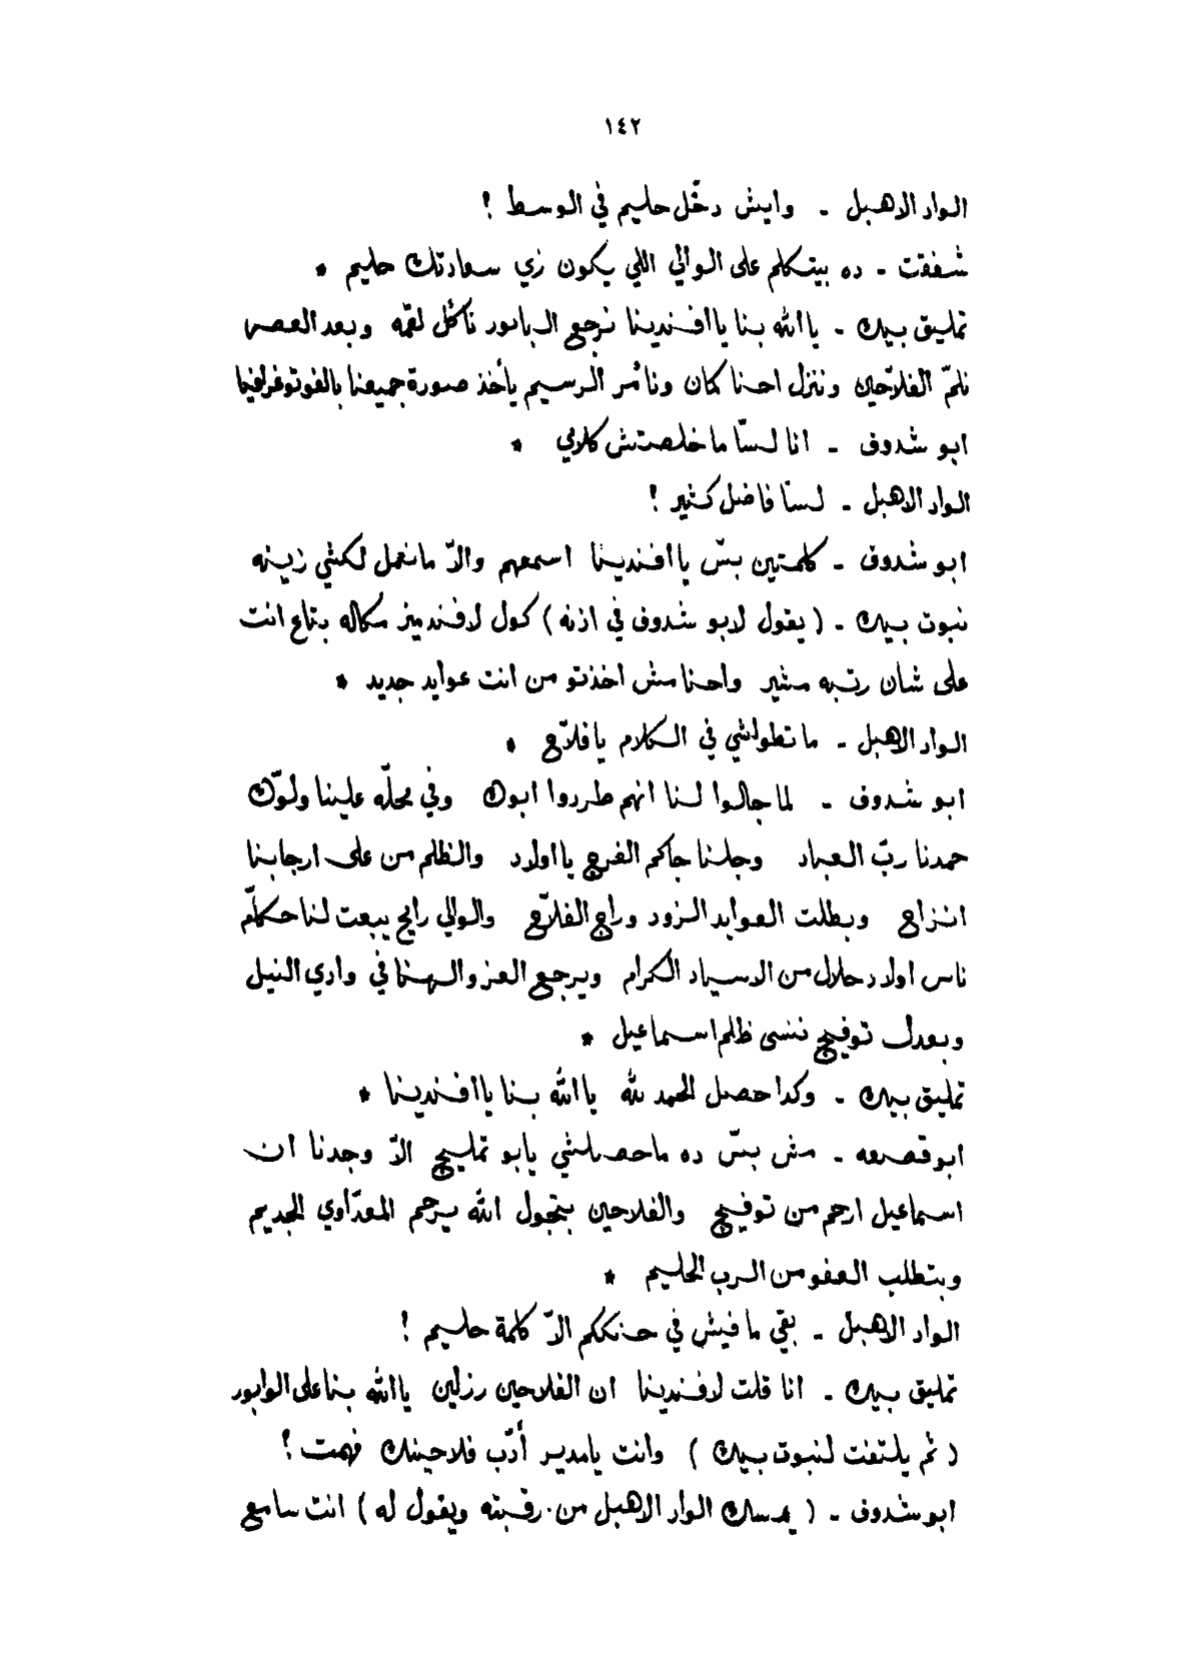 ١٤٢
الواد الاهبل - وايش دخّل حليم في الوسط !
شفقت - ده بيتكلم على الوالي اللي يكون زي سعادتك حليم *
تمليق بيك - يا الله بنا يا افندينا نرجع البابور ناكل لقمه وبعد العصر
نلمّ الفلاحين وننزل احنا كمان ونأمر الرسيم يأخذ صورة جميعنا بالفوتوغرافيا
ابو شدوف - انا لسّا ما خلصتش كلامي *
الواد الاهبل - لسّا فاضل كثير !
ابو شدوف - كلمتين بسّ يا افندينا اسمعهم والاّ ما نعمل لكشي زينه
نبوت بيك - ( يقول لابو شدوف في اذنه ) كول لافنديمز مكاله بتاع انت
على شان رتبه مشير واحنا مش اخذتو من انت عوايد جديد *
الواد الاهبل - ما تطولشي في الكلام يا فلاّح *
ابو شدوف - لما جالوا لنا انهم طردوا ابوك وفي محلّه علينا ولّوك
حمدنا ربّ العباد وجلنا جاكم الفرج يا اولاد والظلم من على ارجابنا
انزاح وبطلت العوايد الزود وراج الفلاّح والوالي رايح يبعت لنا حكاّم
ناس اولاد حلال من الاسياد الكرام ويرجع العز والهنا في وادي النيل
وبعدل توفيج ننسى ظلم اسماعيل *
تمليق بيك - وكدا حصل الحمد لله يا الله بنا يا افندينا *
ابو قصعه - مش بسّ ده ما حصلشي يابو تمليج الاّ وجدنا ان
اسماعيل ارحم من توفيج والفلاحين بتجول الله يرحم المعدّاوي الجديم
وبتطلب العفو من الرب الحليم *
الواد الاهبل - بقي ما فيش في حنككم الاّ كلمة حليم !
تمليق بيك - انا قلت لافندينا ان الفلاحين رزلين يا الله بنا على الوابور
( ثم يلتفت لنبوت بيك ) وانت يا مدير أدّب فلاحينك فهمت ؟
ابو شدوف - ( يمسك الواد الاهبل من رقبته ويقول له ) انت سامع